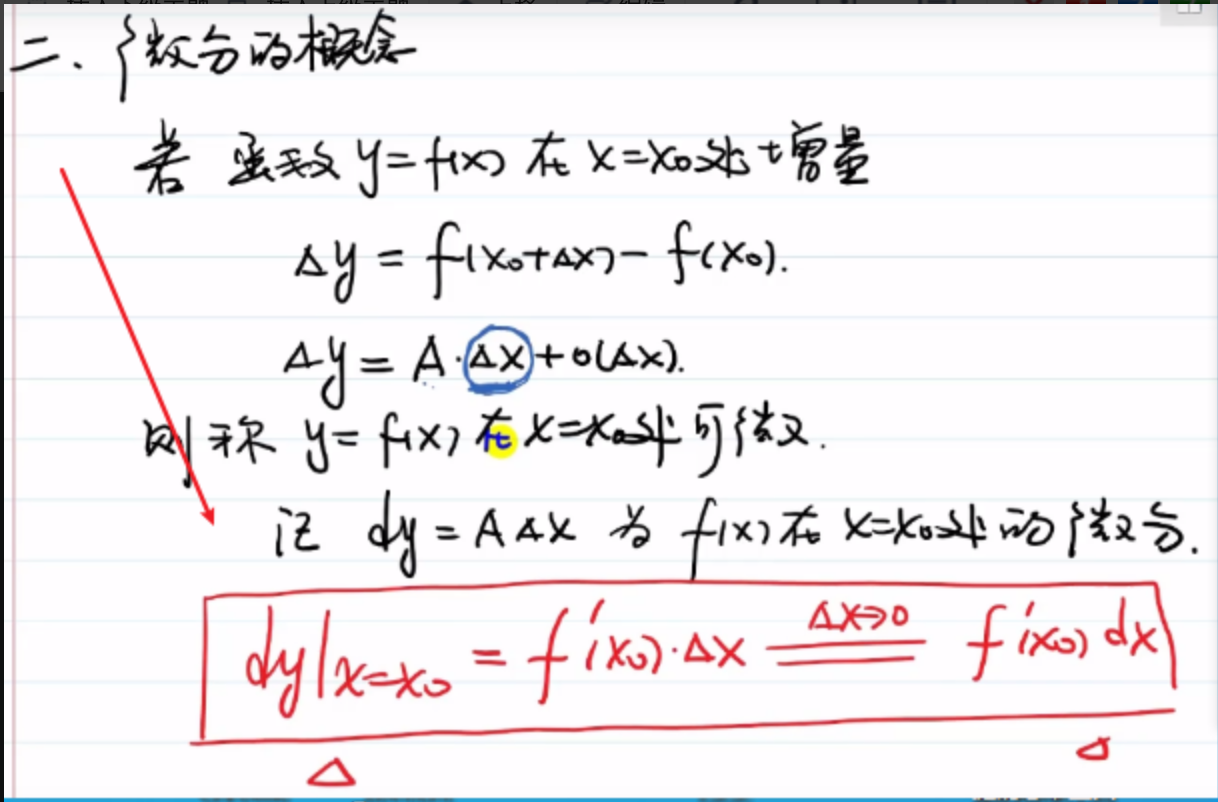 二. 微分的概念
若 函数 y=f(x) 在 x=x₀处 增量
Δy = f(x₀+Δx) - f(x₀).
Δy = A·Δx + o(Δx).
则称 y=f(x) 在 x=x₀处可微.
记 dy = AΔx 为 f(x)在 x=x₀处的微分.
dy|x=x₀ = f'(x₀)·Δx Δx→0 f'(x₀)dx